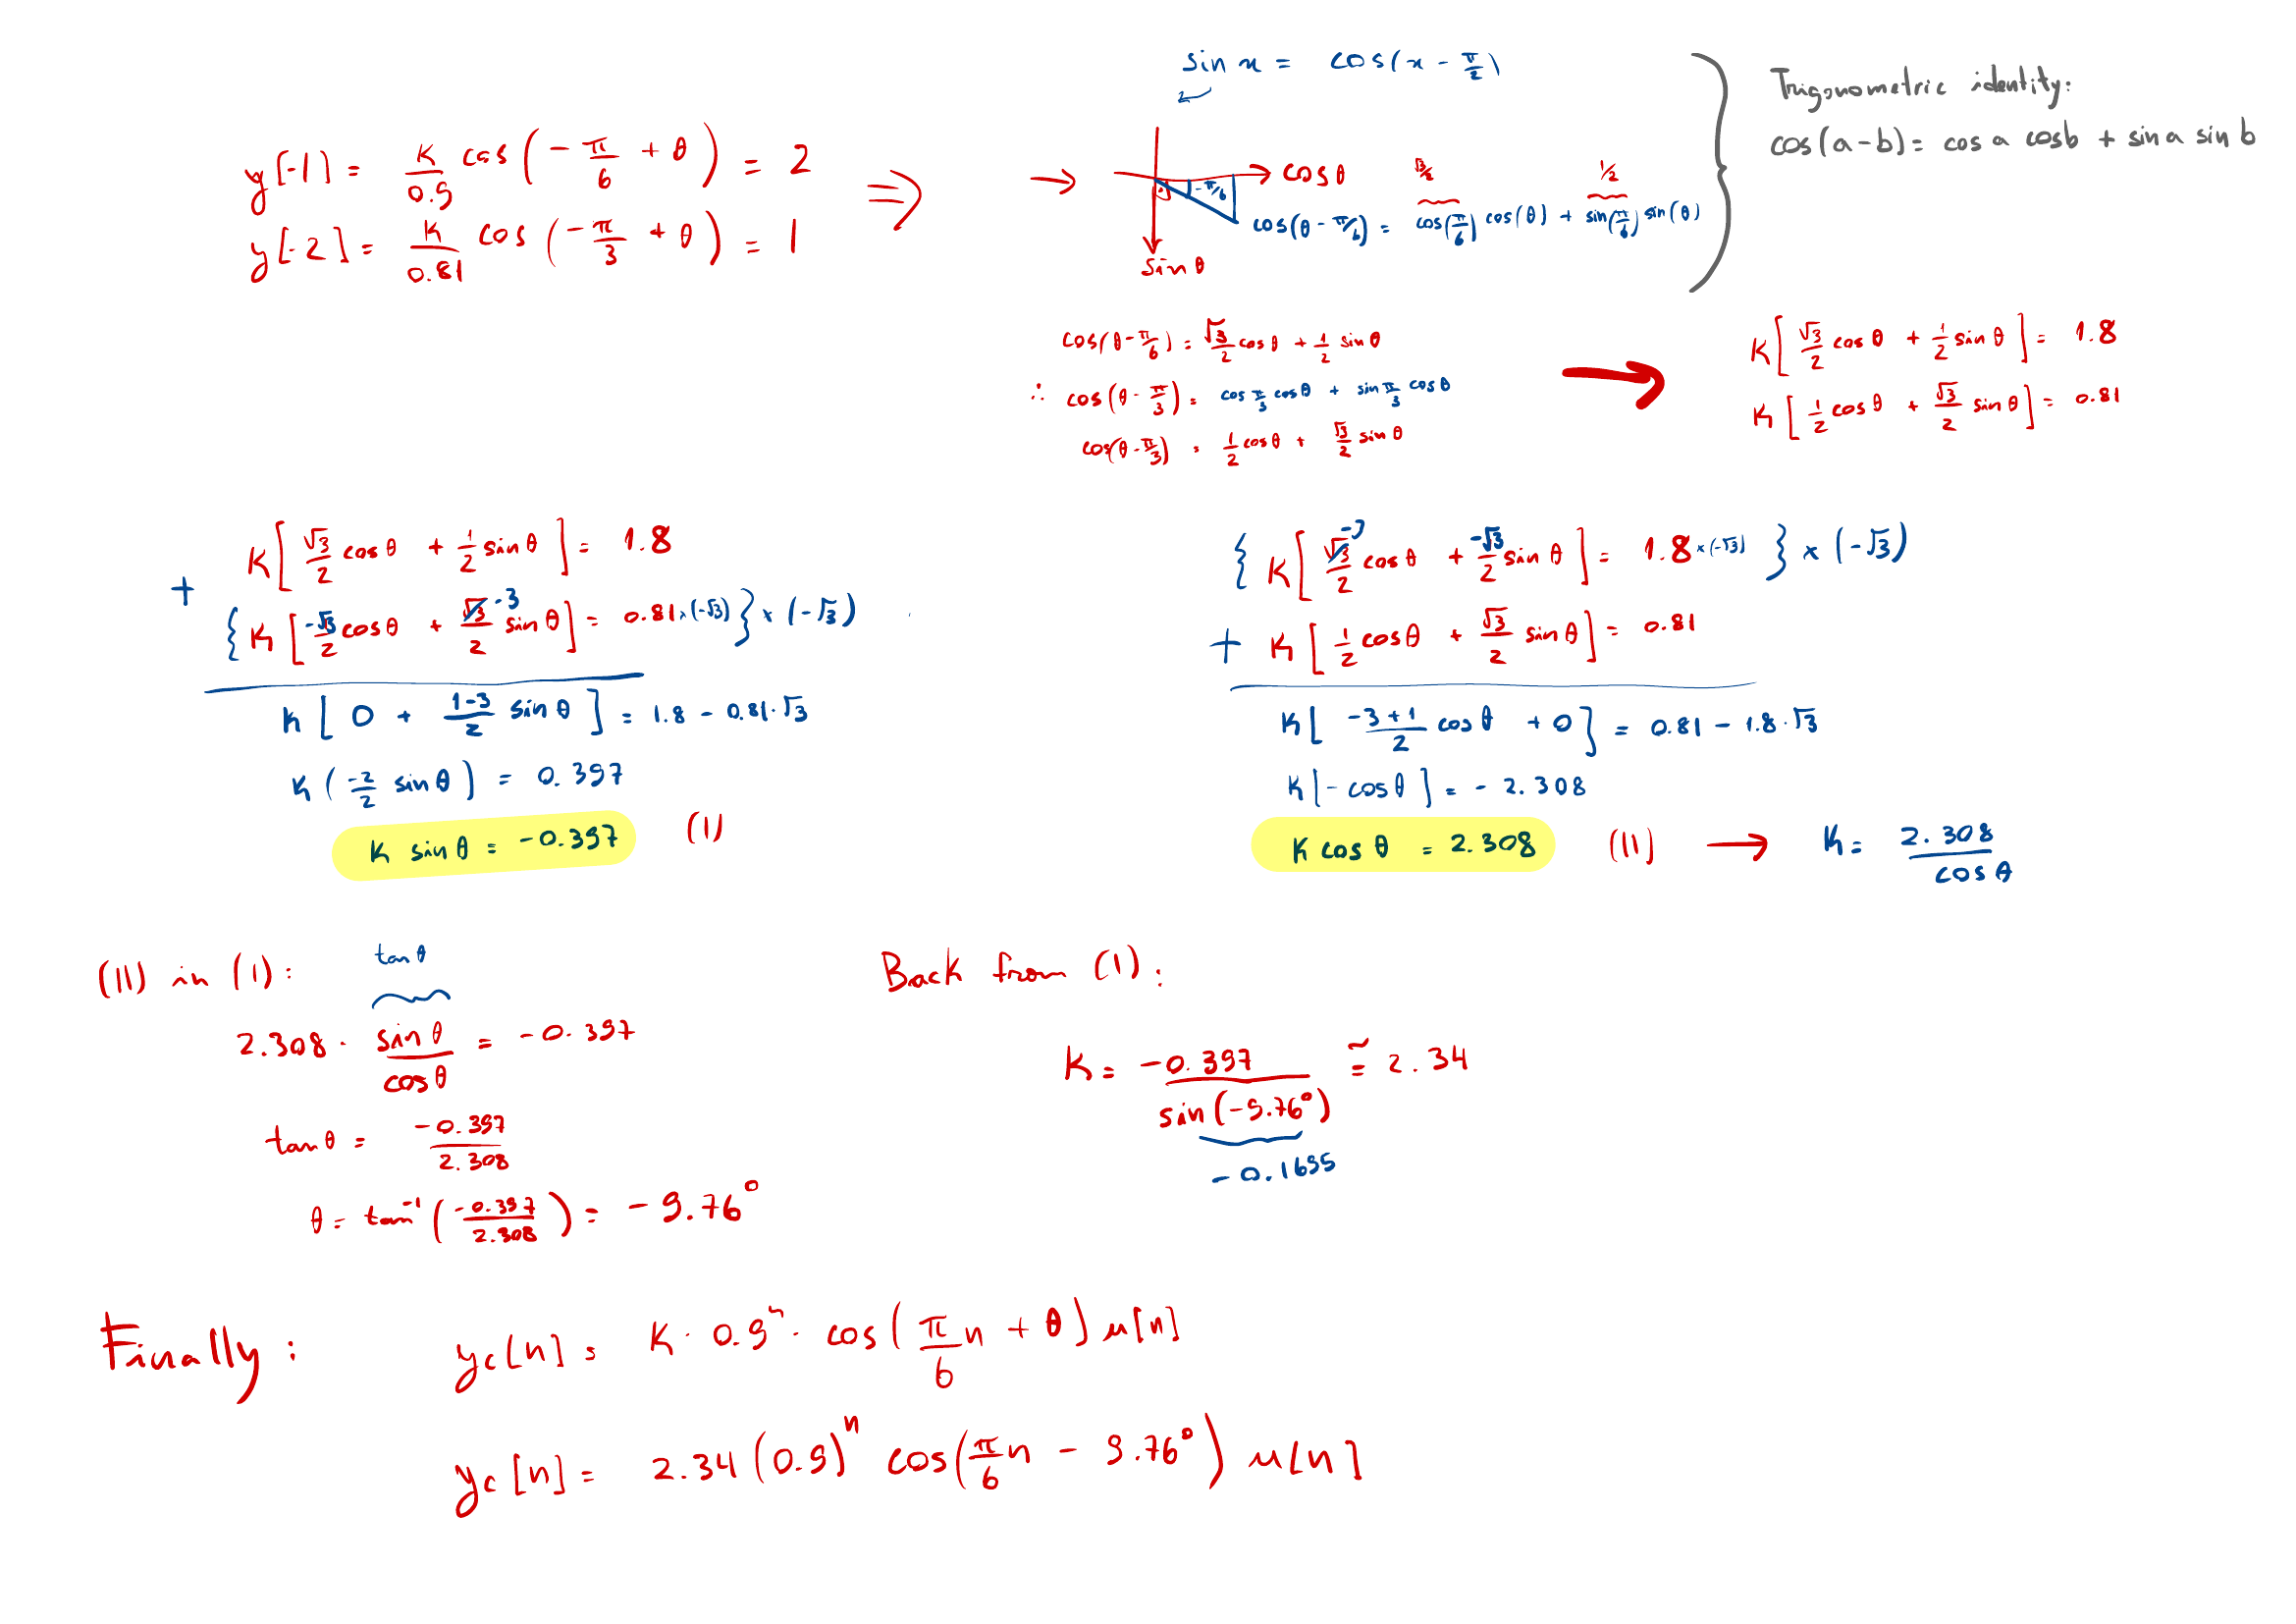 sin x = cos(x - π/2)
Trigonometric identity:
cos(a-b) = cos a cos b + sin a sin b
y[-1] = K/0.9 cos(-π/6 + θ) = 2 ⇒
y[-2] = K/0.81 cos(-π/3 + θ) = 1
→ cos θ
-π/6
sin θ
√3/2 1/2
cos(θ - π/6) = cos(π/6) cos(θ) + sin(π/6) sin(θ)
cos(θ - π/6) = √3/2 cos θ + 1/2 sin θ
∴ cos(θ - π/3) = cos π/3 cos θ + sin π/3 cos θ
cos(θ - π/3) = 1/2 cos θ + √3/2 sin θ
→ K[√3/2 cos θ + 1/2 sin θ] = 1.8
K[1/2 cos θ + √3/2 sin θ] = 0.81
K[√3/2 cos θ + 1/2 sin θ] = 1.8
+ {K[-√3/2 cos θ + -3/2 sin θ] = 0.81 × (-√3)} × (-√3)
K[0 + 1-3/2 sin θ] = 1.8 - 0.81·√3
K(-2/2 sin θ) = 0.397
K sin θ = -0.397 (I)
{K[-3/2 cos θ + -√3/2 sin θ] = 1.8 × (-√3)} × (-√3)
+ K[1/2 cos θ + √3/2 sin θ] = 0.81
K[-3+1/2 cos θ + 0] = 0.81 - 1.8·√3
K[-cos θ] = -2.308
K cos θ = 2.308 (II) → K = 2.308/cos θ
(II) in (I):
tan θ
2.308 · sin θ/cos θ = -0.397
tan θ = -0.397/2.308
θ = tan⁻¹(-0.397/2.308) = -9.76°
Back from (I):
K = -0.397/sin(-9.76°) ≅ 2.34
-0.1695
Finally: yc[n] = K · 0.9ⁿ · cos(π/6 n + θ) u[n]
yc[n] = 2.34 (0.9)ⁿ cos(π/6 n - 9.76°) u[n]